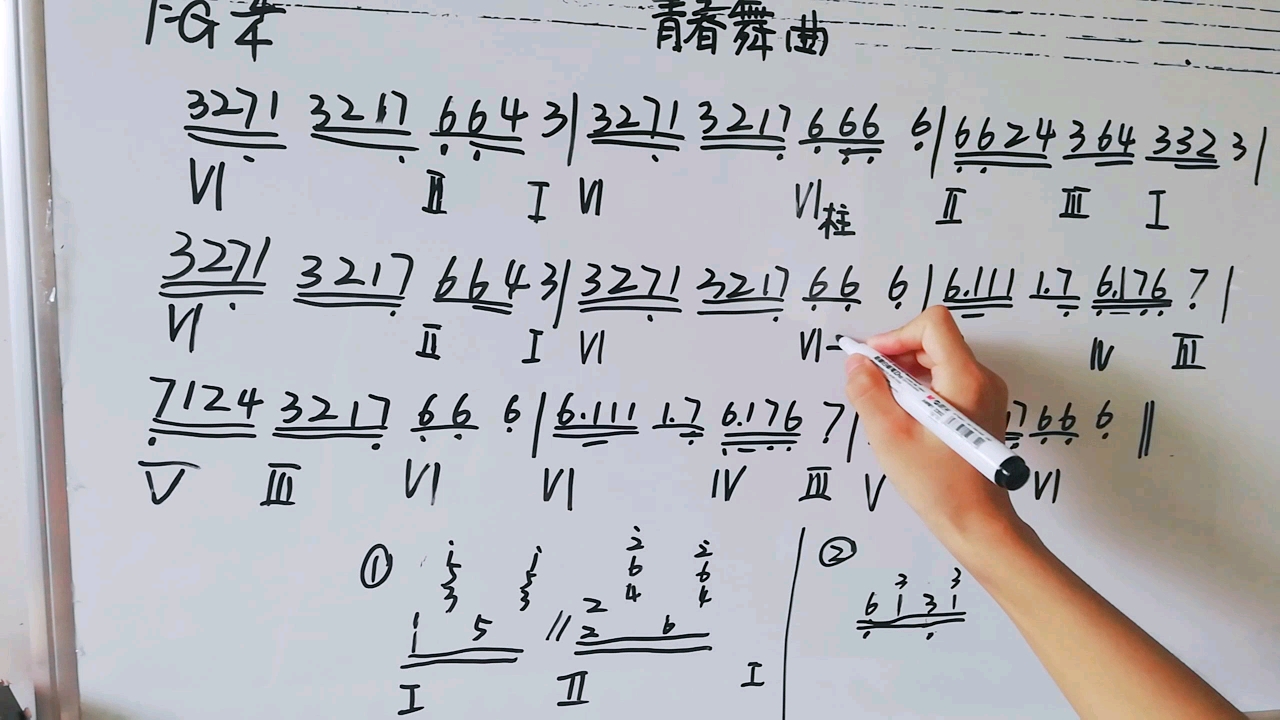 1=G 4/4 青春舞曲
3271 3217 664 3 | 3271 3217 666 6 | 6624 364 332 3 |
VI II I VI VI柱 II III I
3271 3217 664 3 | 3271 3217 66 6 | 6.111 1.7 6.176 7 |
VI II I VI VI- IV III
7124 3217 66 6 | 6.111 1.7 6.176 7 | 7 66 6 ‖
V III VI VI IV III V VI
① i i 2 2 ② 3 3
5 5 6 6 6 1 3 1
3 3 4 4
1 2
1 5 // 2 6
I II I